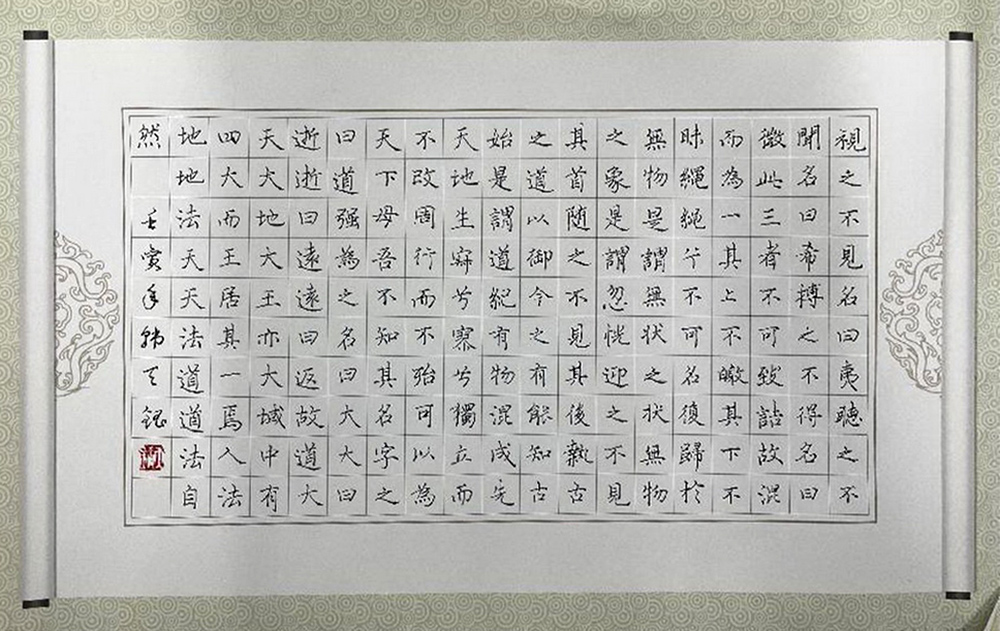 視之不見名曰夷聽之不
聞名曰希搏之不得名曰
微此三者不可致詰故混
而為一其上不皦其下不
昧繩繩兮不可名復歸於
無物是謂無状之状無物
之象是謂忽恍迎之不見
其首随之不見其後執古
之道以御今之有能知古
始是謂道紀有物混成先
天地生寂兮寥兮獨立而
不改周行而不殆可以為
天下母吾不知其名字之
曰道强為之名曰大大曰
逝逝曰遠遠曰返故道大
天大地大王亦大域中有
四大而王居其一焉人法
地地法天天法道道法自
然 壬寅年